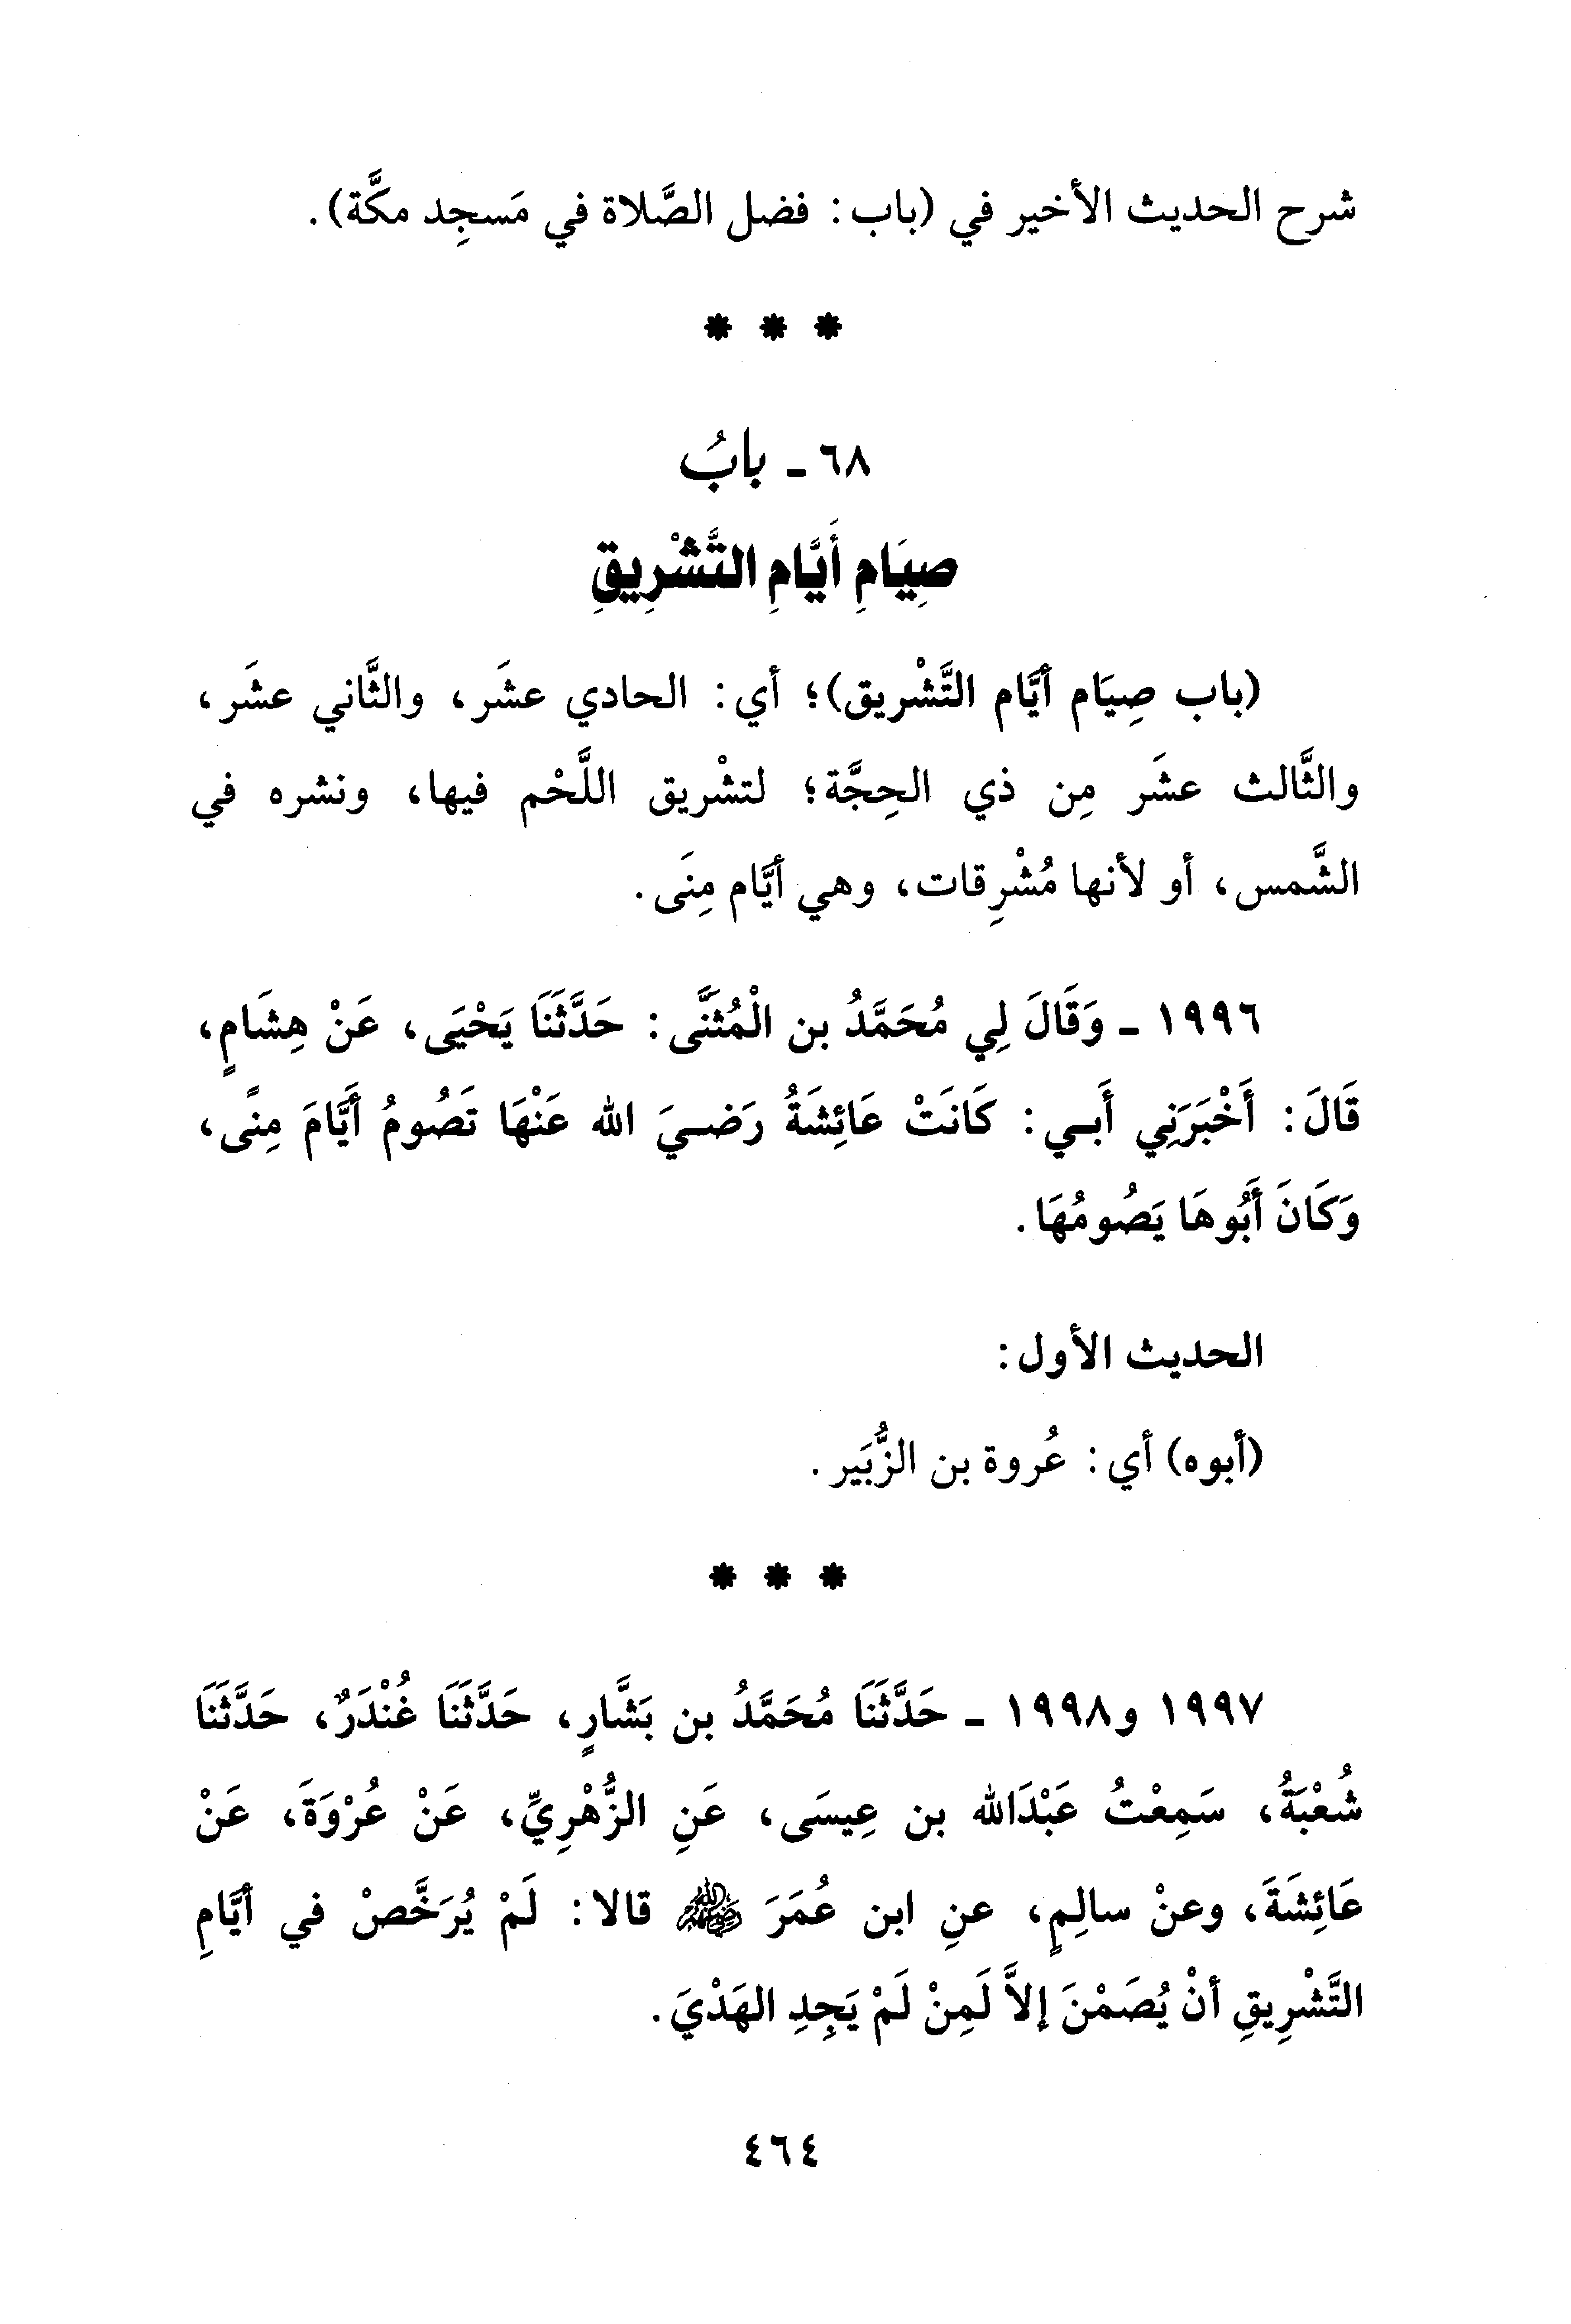 شرح الحديث الأخير في (باب: فضل الصَّلاة في مَسجِد مكَّة).
* * *
٦٨ - بابُ
صِيَامِ أَيَّامِ التَّشْرِيقِ
(باب صِيَام أيَّام التَّشْريق)؛ أي: الحادي عشَر، والثَّاني عشَر،
والثَّالث عشَر مِن ذي الحِجَّة؛ لتشْريق اللَّحْم فيها، ونشره في
الشَّمس، أو لأنها مُشْرِقات، وهي أيَّام مِنَى.
١٩٩٦ - وَقَالَ لِي مُحَمَّدُ بن الْمُثَنَّى: حَدَّثَنَا يَحْيَى، عَنْ هِشَامٍ،
قَالَ: أَخْبَرَنِي أَبِي: كَانَتْ عَائِشَةُ رَضيَ الله عَنْهَا تَصُومُ أَيَّامَ مِنًى،
وَكَانَ أَبُوهَا يَصُومُهَا.
الحديث الأول:
(أبوه) أي: عُروة بن الزُّبَير.
* * *
١٩٩٧ و١٩٩٨ - حَدَّثَنَا مُحَمَّدُ بن بَشَّارٍ، حَدَّثَنَا غُنْدَرٌ، حَدَّثَنَا
شُعْبَةُ، سَمِعْتُ عَبْدَالله بن عِيسَى، عَنِ الزُّهْرِيِّ، عَنْ عُرْوَةَ، عَنْ
عَائِشَةَ، وعنْ سالِمٍ، عنِ ابن عُمَرَ رضي الله عنهم قالا: لَمْ يُرَخَّصْ في أيَّامِ
التَّشْرِيقِ أنْ يُصَمْنَ إلاَّ لَمِنْ لَمْ يَجِدِ الهَدْيَ.
٤٦٤